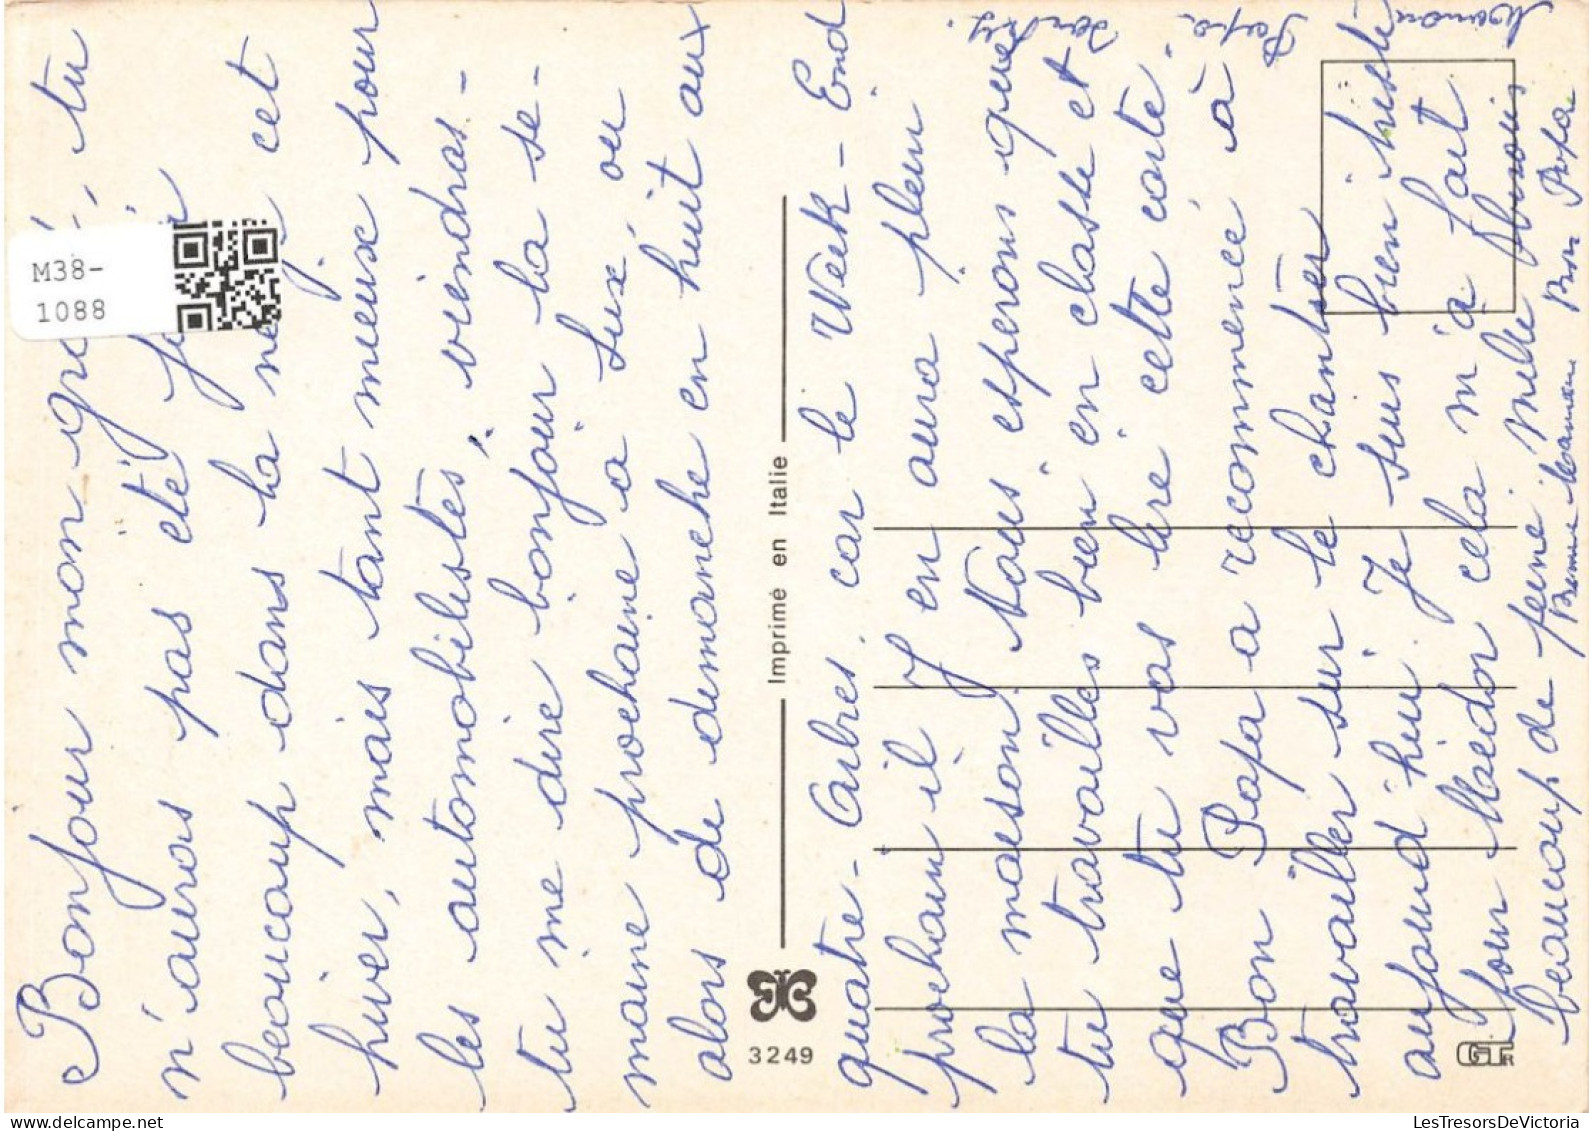 Bonjour mon , tu
n'auras pas été
beaucoup dans la cet
hiver, mais tant mieux pour
les automobilistes, viendras-
tu me dire bonjour la se-
maine prochaine à Luxé, ou
alors de dimanche en huit aux
quatre-Arbres. car le Week-End
prochain il y en aura plein
la maison. Nous esperons que
tu travailles bien en classe et
que tu vas lire cette carte.
Bon Papa a recommencé à
travailler sur le chantier
aujourd'hui. Je suis bien triste
pour Maedor cela m'a fait
beaucoup de peine. mille
Bonne Maman Bon Papa
Maman
Papa,
M38-
1088
Imprimé en Italie
3249
GT
LesTresorsDeVictoria